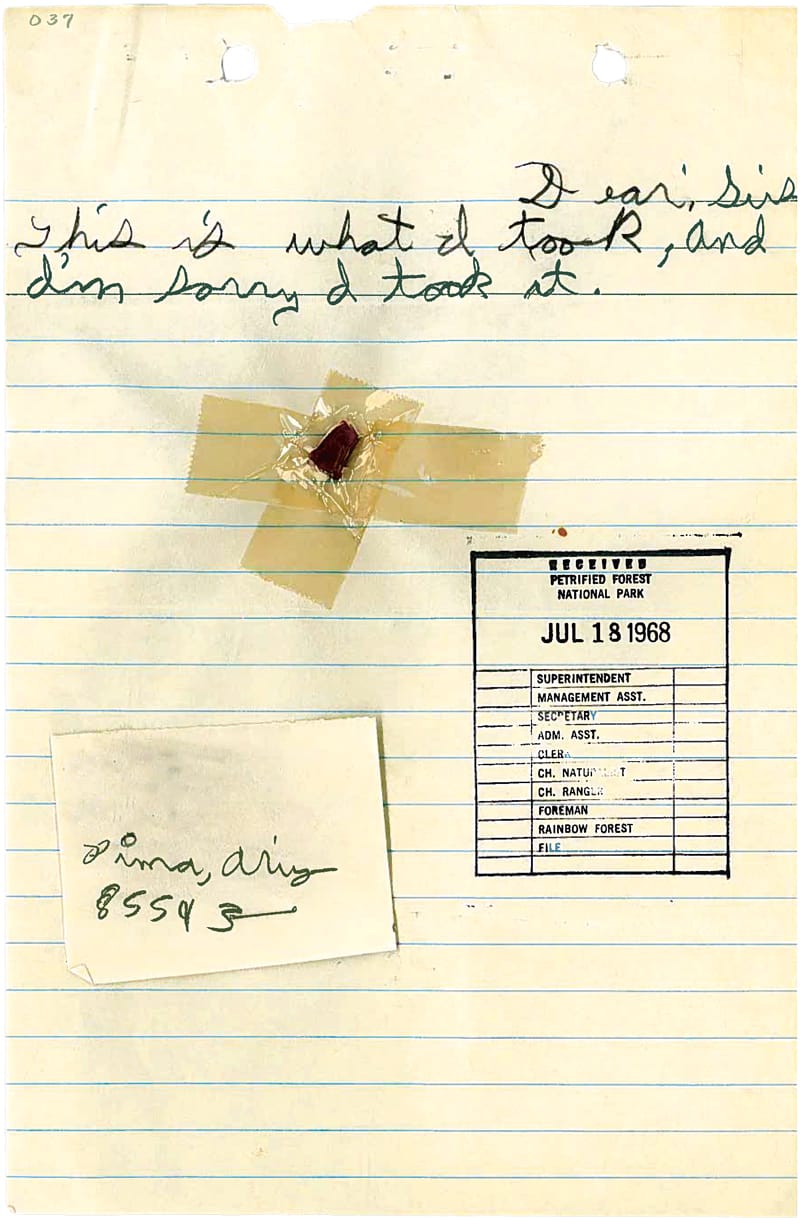 037
Dear, Sirs
This is what I took, and
I'm sorry I took it.
RECEIVED
PETRIFIED FOREST
NATIONAL PARK
JUL 18 1968
SUPERINTENDENT
MANAGEMENT ASST.
SECRETARY
ADM. ASST.
CLERK
CH. NATURALIST
CH. RANGER
FOREMAN
RAINBOW FOREST
FILE
Pima, Ariz
85543